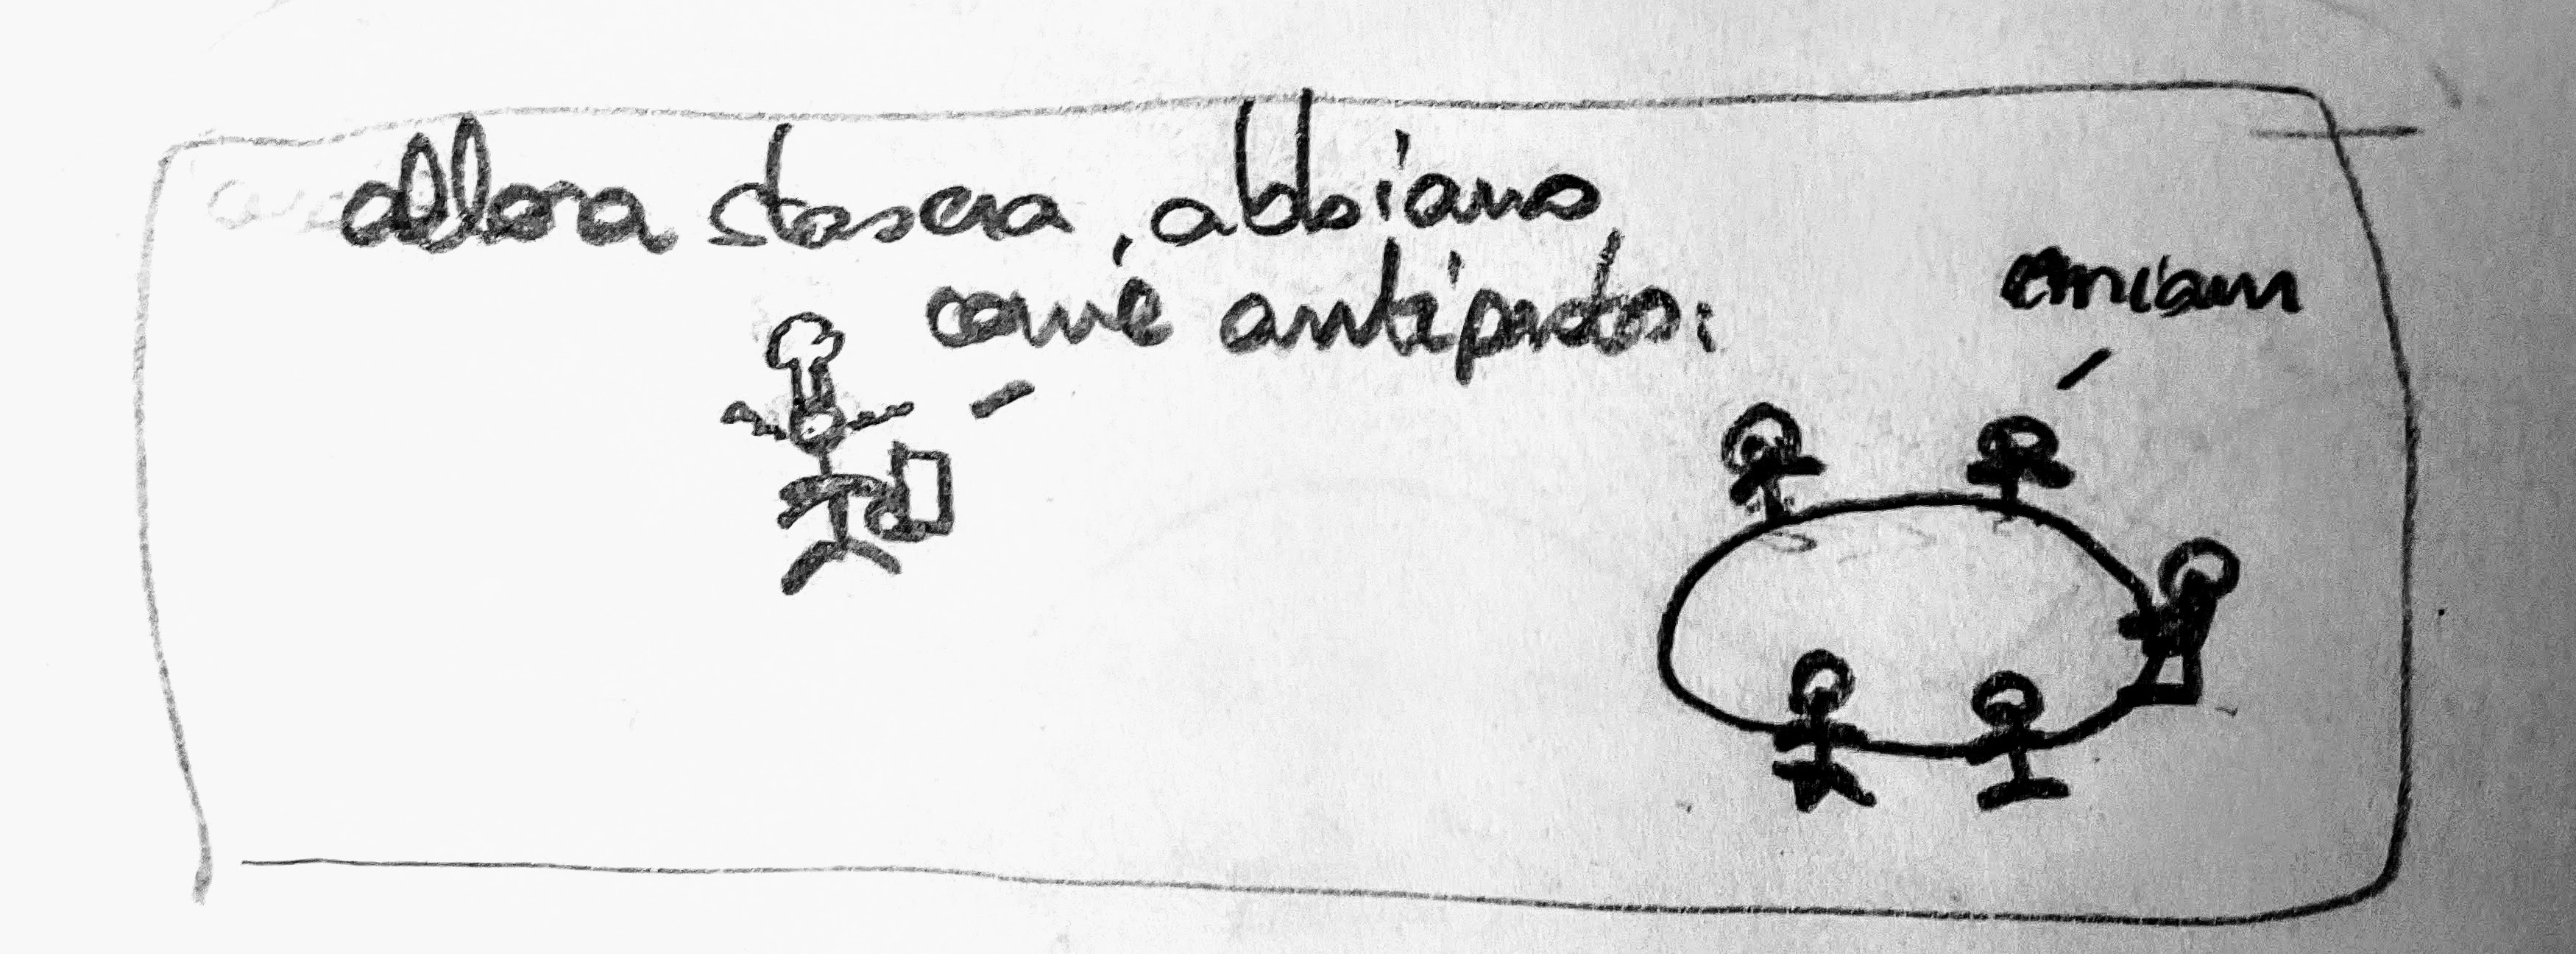 allora stasera, abbiamo
come antipasto: